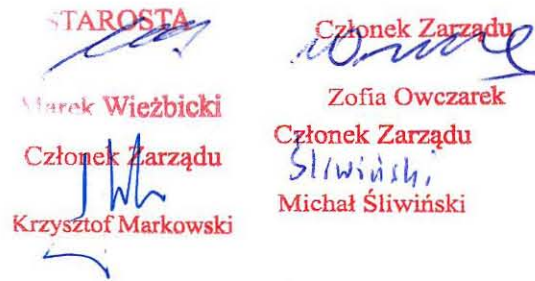 STAROSTA
Marek Wieżbicki
Członek Zarządu
Krzysztof Markowski
Członek Zarządu
Zofia Owczarek
Członek Zarządu
Śliwiński
Michał Śliwiński